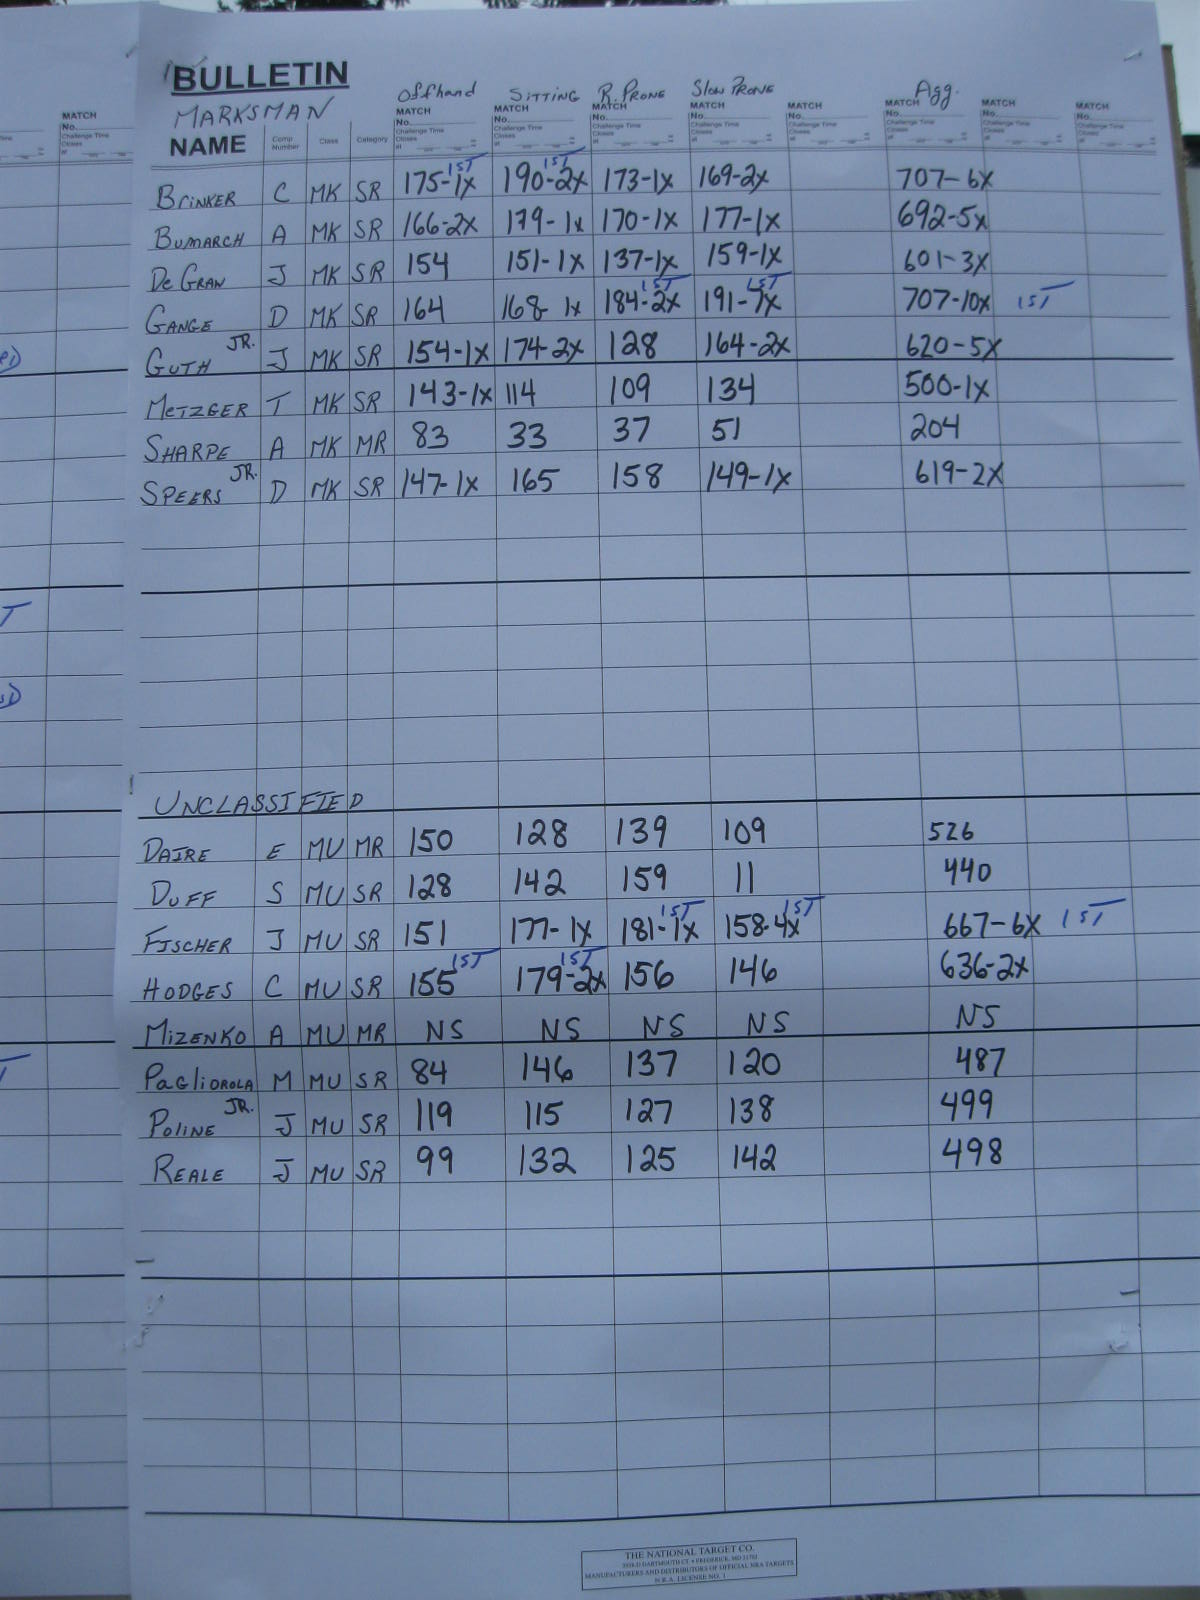 BULLETIN
MARKSMAN
Offhand SITTING R. PRONE Slow PRONE Agg.
MATCH MATCH MATCH MATCH MATCH MATCH MATCH MATCH MATCH
No. No. No. No. No. No. No. No. No.
Challenge Time Closes
NAME Comp Number Class Category
BrinKER C MK SR 175-1x 1ST 190-2x 1ST 173-1x 169-2x 707-6x
BUMARCH A MK SR 166-2x 179-1x 170-1x 177-1x 692-5x
De GRAN J MK SR 154 151-1x 137-1x 159-1x 601-3x
GANGE D MK SR 164 168-1x 184-2x 1ST 191-7x 1ST 707-10x 1ST
GUTH JR. J MK SR 154-1x 174-2x 128 164-2x 620-5x
METZGER T MK SR 143-1x 114 109 134 500-1x
SHARPE A MK MR 83 33 37 51 204
SPEERS JR. D MK SR 147-1x 165 158 149-1x 619-2x
UNCLASSIFIED
DAIRE E MU MR 150 128 139 109 526
DUFF S MU SR 128 142 159 11 440
FISCHER J MU SR 151 177-1x 181-1x 1ST 158-4x 1ST 667-6x 1ST
HODGES C MU SR 155 1ST 179-2x 1ST 156 146 636-2x
MIZENKO A MU MR NS NS NS NS NS
PAGLIOROLA M MU SR 84 146 137 120 487
POLINE JR. J MU SR 119 115 127 138 499
REALE J MU SR 99 132 125 142 498
THE NATIONAL TARGET CO.
MANUFACTURERS AND DISTRIBUTORS OF OFFICIAL NRA TARGETS
N.R.A. LICENSE NO. 1